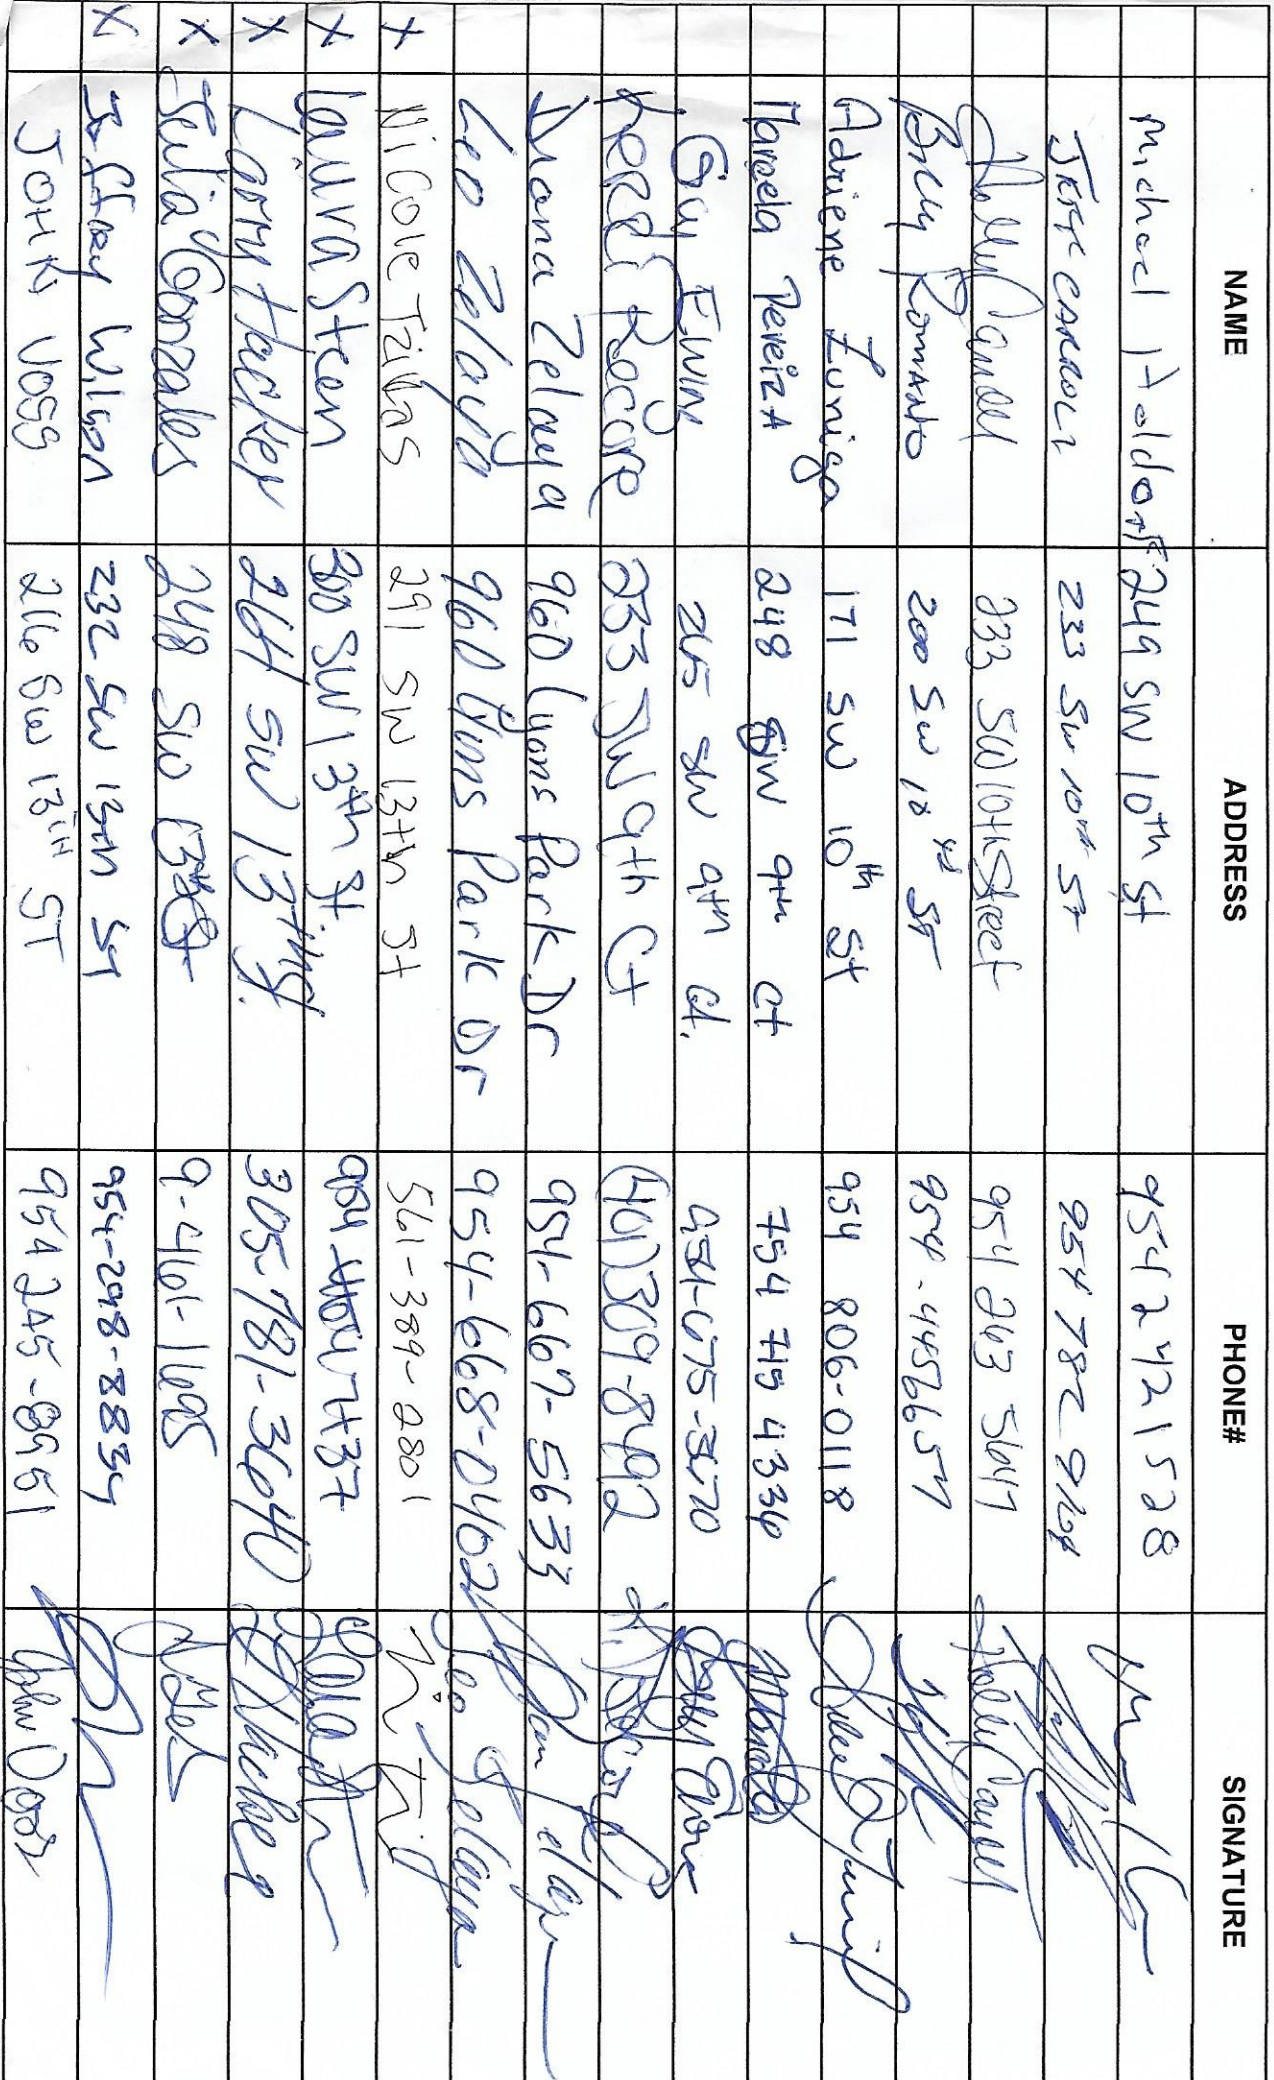 NAME ADDRESS PHONE# SIGNATURE
Michael Holdorf 249 SW 10th St 954 242 1528
JEFF CARROLL 233 SW 10th ST 954 782
Holly Caudell 233 SW 10th Street 954 263 5647 Holly Caudell
Billy Romanto 200 SW 10 ST 954-4456657
Adriene Zuniga 171 SW 10th St 954 806-0118
Marcela PereirA 248 SW 9th Ct 754 715 4336
Gary Ewing 265 SW 9th Ct. 954-675-3570
Kerri Rocure 233 SW 9th Ct (401) 369-8492
Diana Zelaya 960 Lyons Park Dr 954-667-5633
Leo Zelaya 960 Lyons Park Dr 954-668-0402 Leo Zelaya
X Nicole Tzikas 291 SW 13th St 561-389-2801
X Laura Steen 300 SW 13th St
X Loory Hacker 264 SW 13th St. 305-781-3640
X Julia Gonzales 248 SW 13th St 9-461-1695
X Jeffrey Wilson 232 SW 13th ST 954-298-8834
JOHN VOSS 216 SW 13TH ST 954 245-8951 John Voss